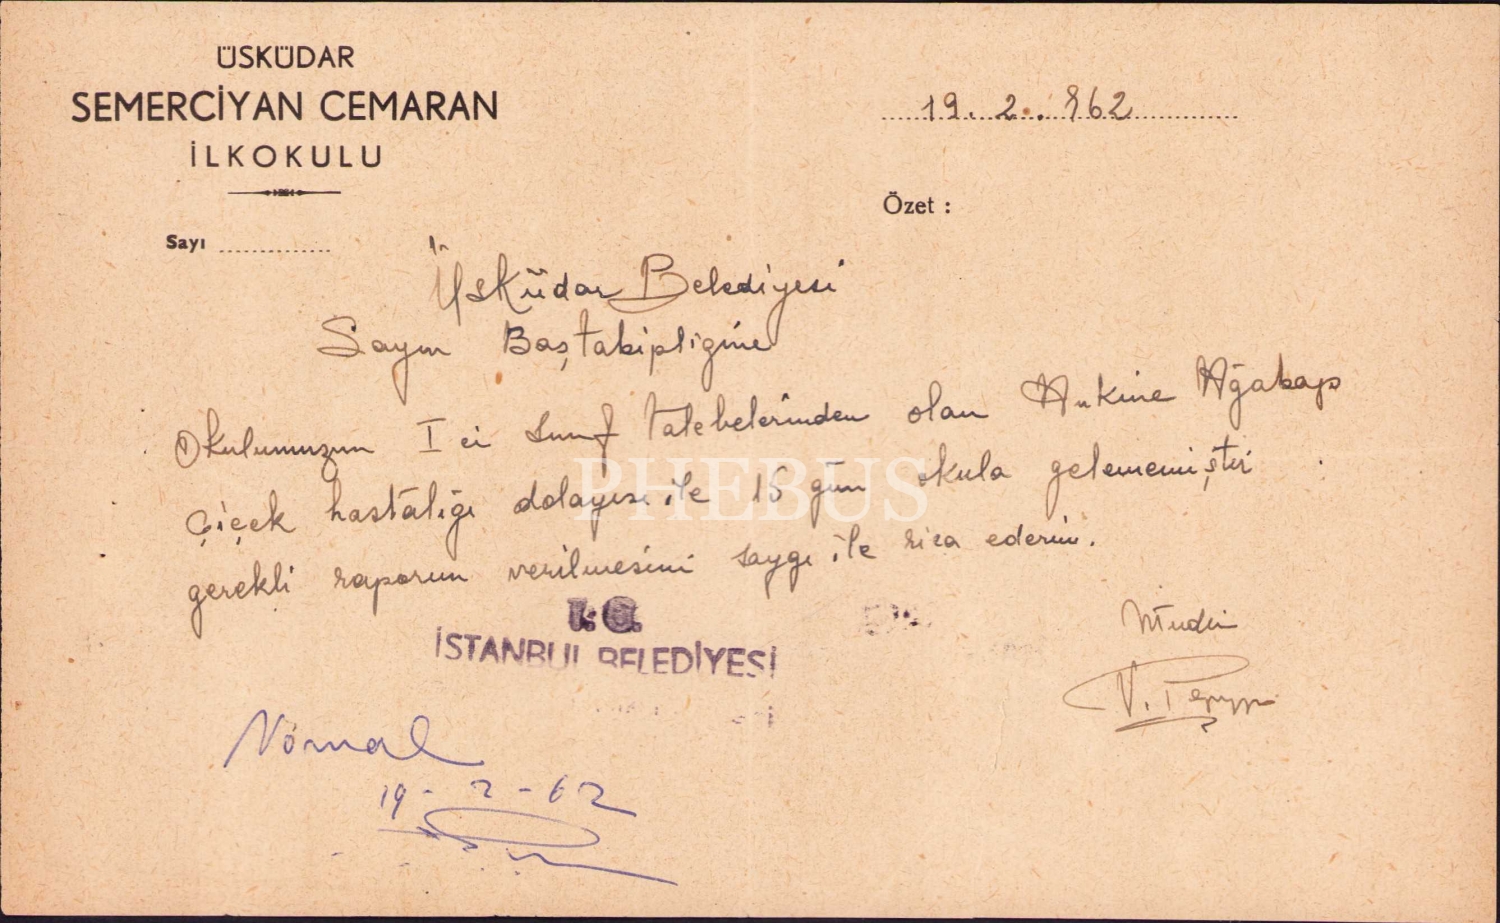 ÜSKÜDAR
SEMERCİYAN CEMARAN
İLKOKULU
19.2.962
Özet :
Sayı
Üsküdar Belediyesi
Sayın Baştabipliğine
Okulumuzun I ci sınıf talebelerinden olan Ağabap
çiçek hastalığı dolayısı ile 15 gün okula gelememiştir
gerekli raporun verilmesini saygı ile rica ederim.
T.C.
İSTANBUL BELEDİYESİ
Müdür
Nörmal
19-2-62
PHEBUS